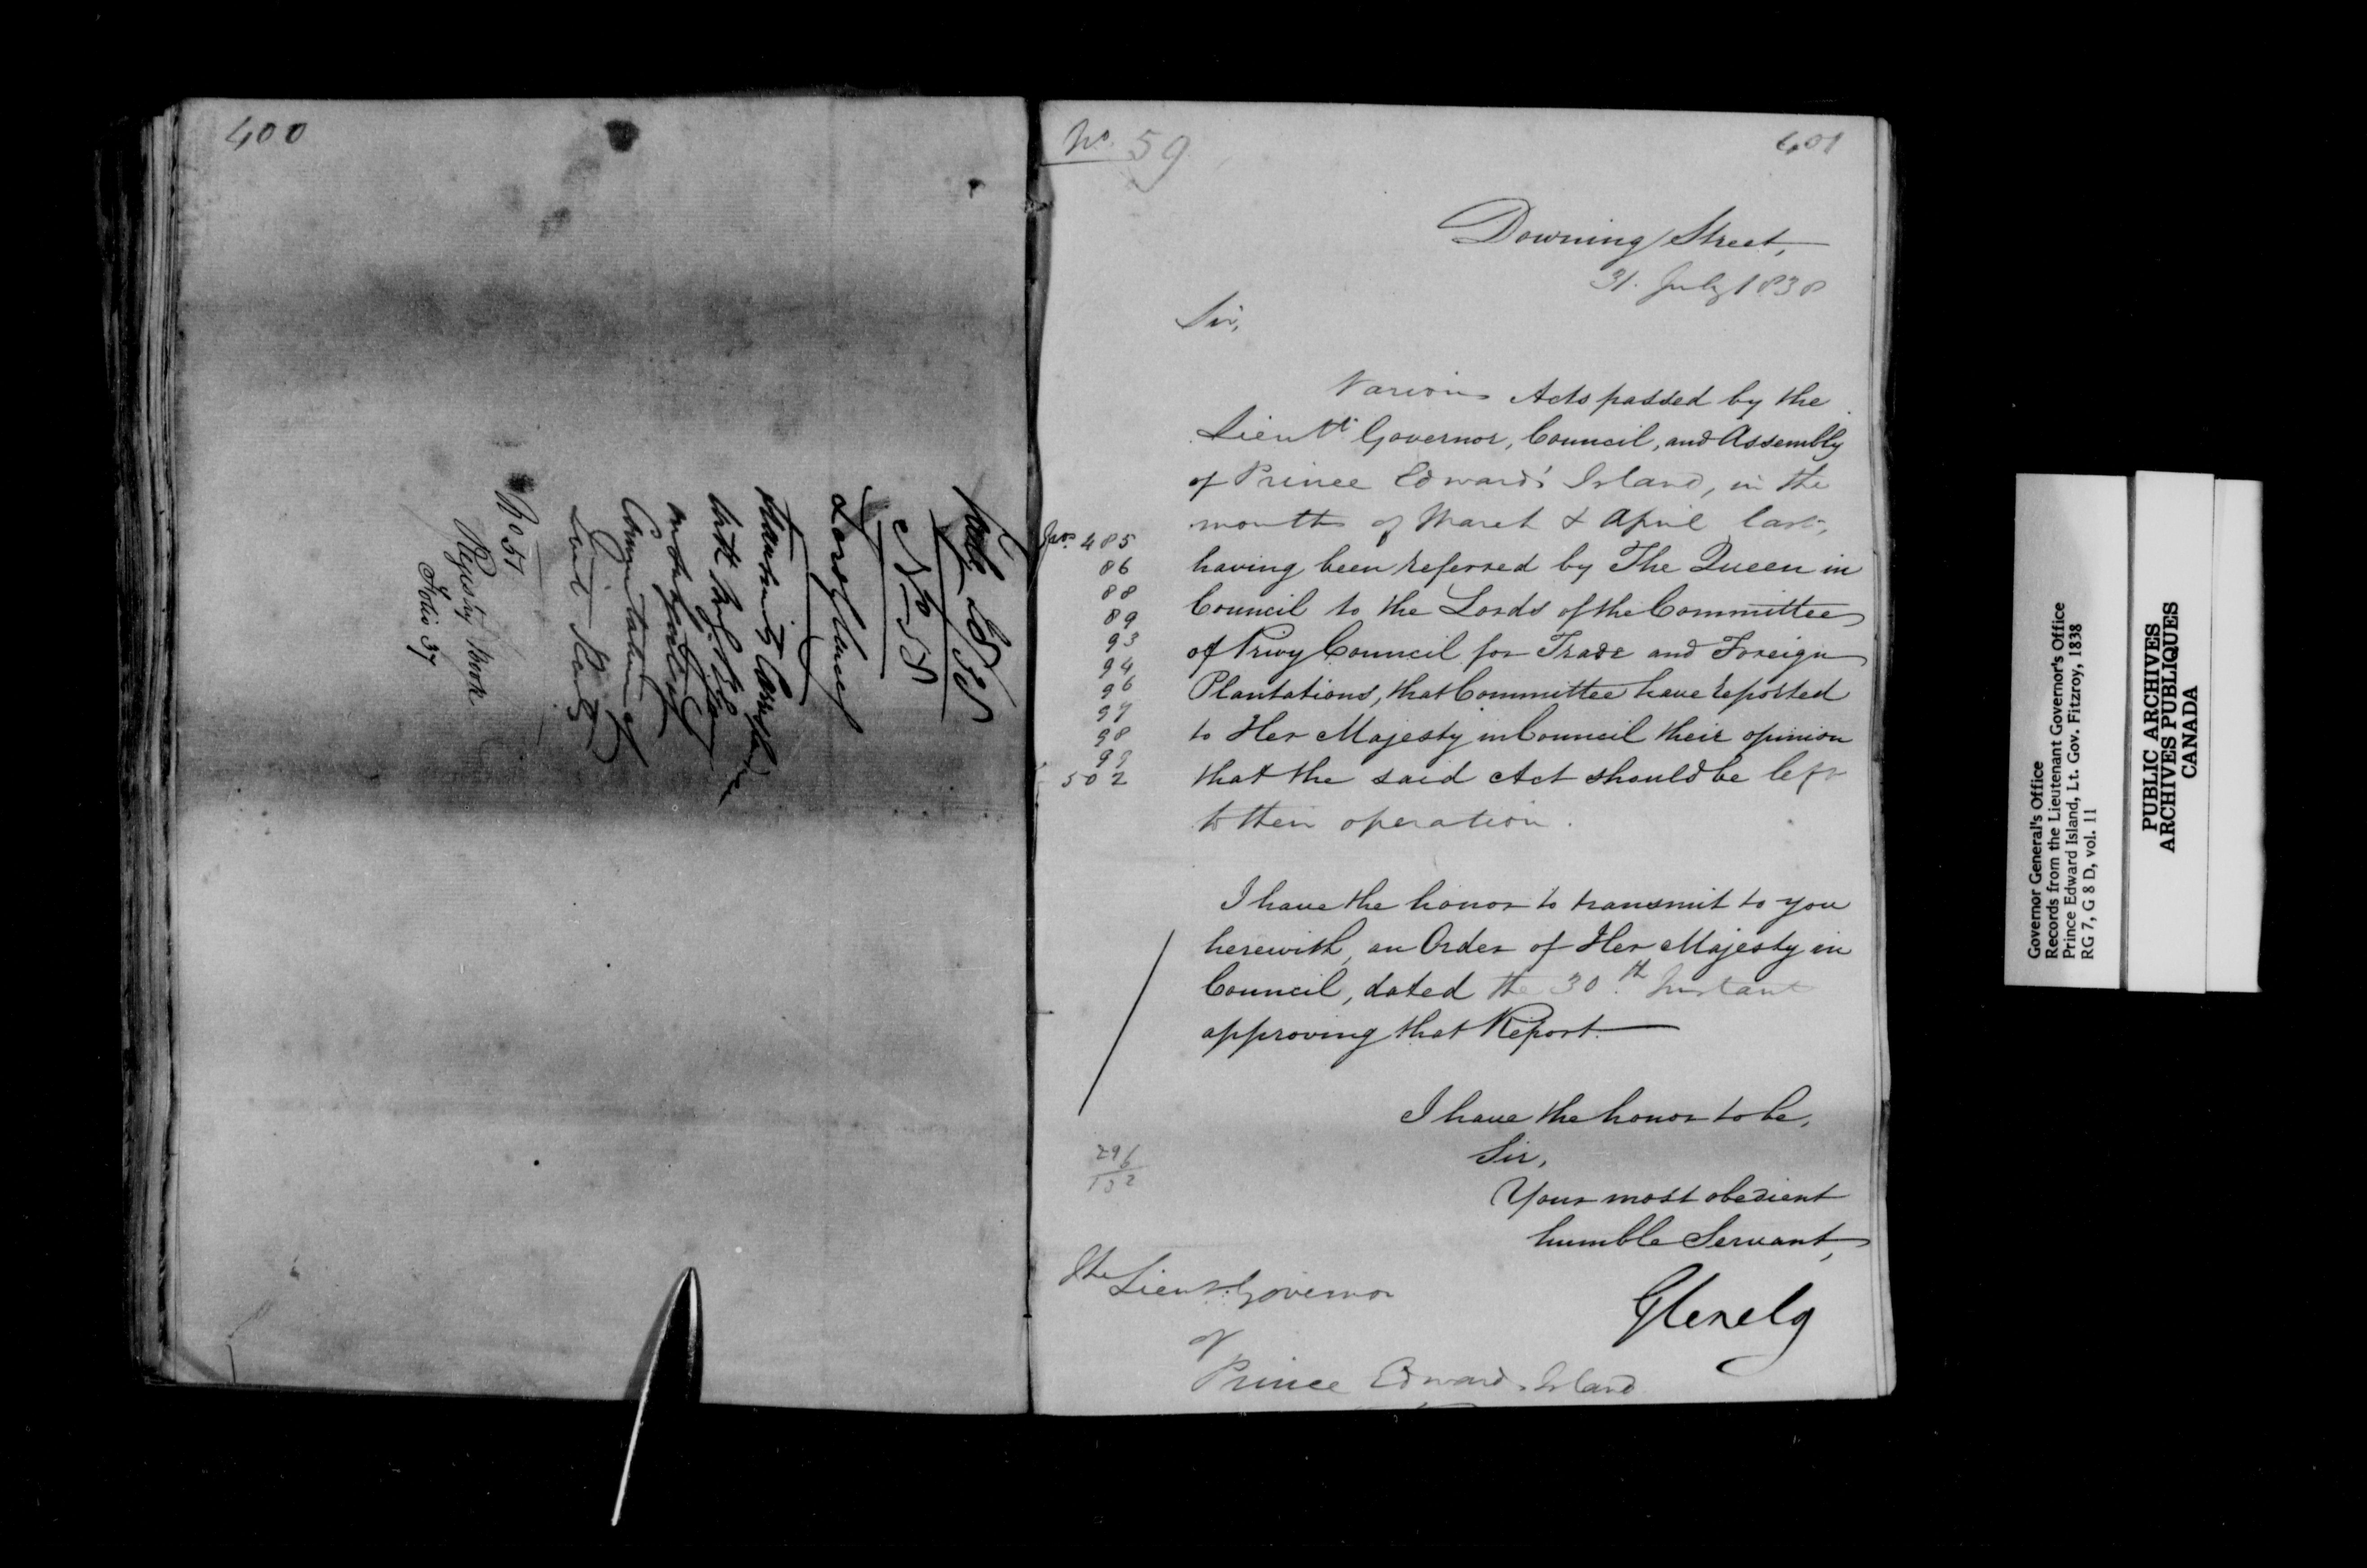 400
July 28/38
No 58
Lord Glenelg
No 57
Registry Book
Folio 37
No. 59
401
Downing Street,
31. July 1838
Sir,
Various Acts passed by the
Lieutt. Governor, Council, and Assembly
of Prince Edward's Island, in the
months of March & April last,
having been referred by The Queen in
Council to the Lords of the Committee
of Privy Council for Trade and Foreign
Plantations, that Committee have reported
to Her Majesty in Council their opinion
that the said Act should be left
to their operation.
Nos. 485
86
88
89
93
94
96
97
98
99
502
I have the honor to transmit to you
herewith, an Order of Her Majesty in
Council, dated the 30.th Instant
approving that Report.
I have the honor to be,
Sir,
Your most obedient
humble Servant,
Glenelg
The Lieut. Governor
of
Prince Edward Island
Governor General's Office
Records from the Lieutenant Governor's Office
Prince Edward Island, Lt. Gov. Fitzroy, 1838
RG 7, G 8 D, vol. 11
PUBLIC ARCHIVES
ARCHIVES PUBLIQUES
CANADA